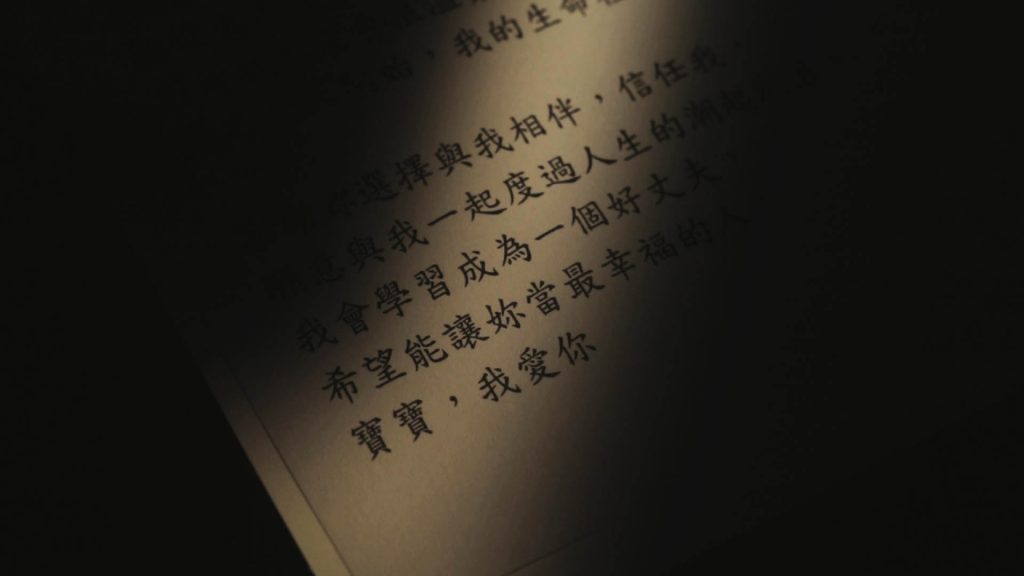 ，我的生命
你選擇與我相伴，信任我，
願意與我一起度過人生的潮起
我會學習成為一個好丈夫，
希望能讓妳當最幸福的人
寶寶，我愛你